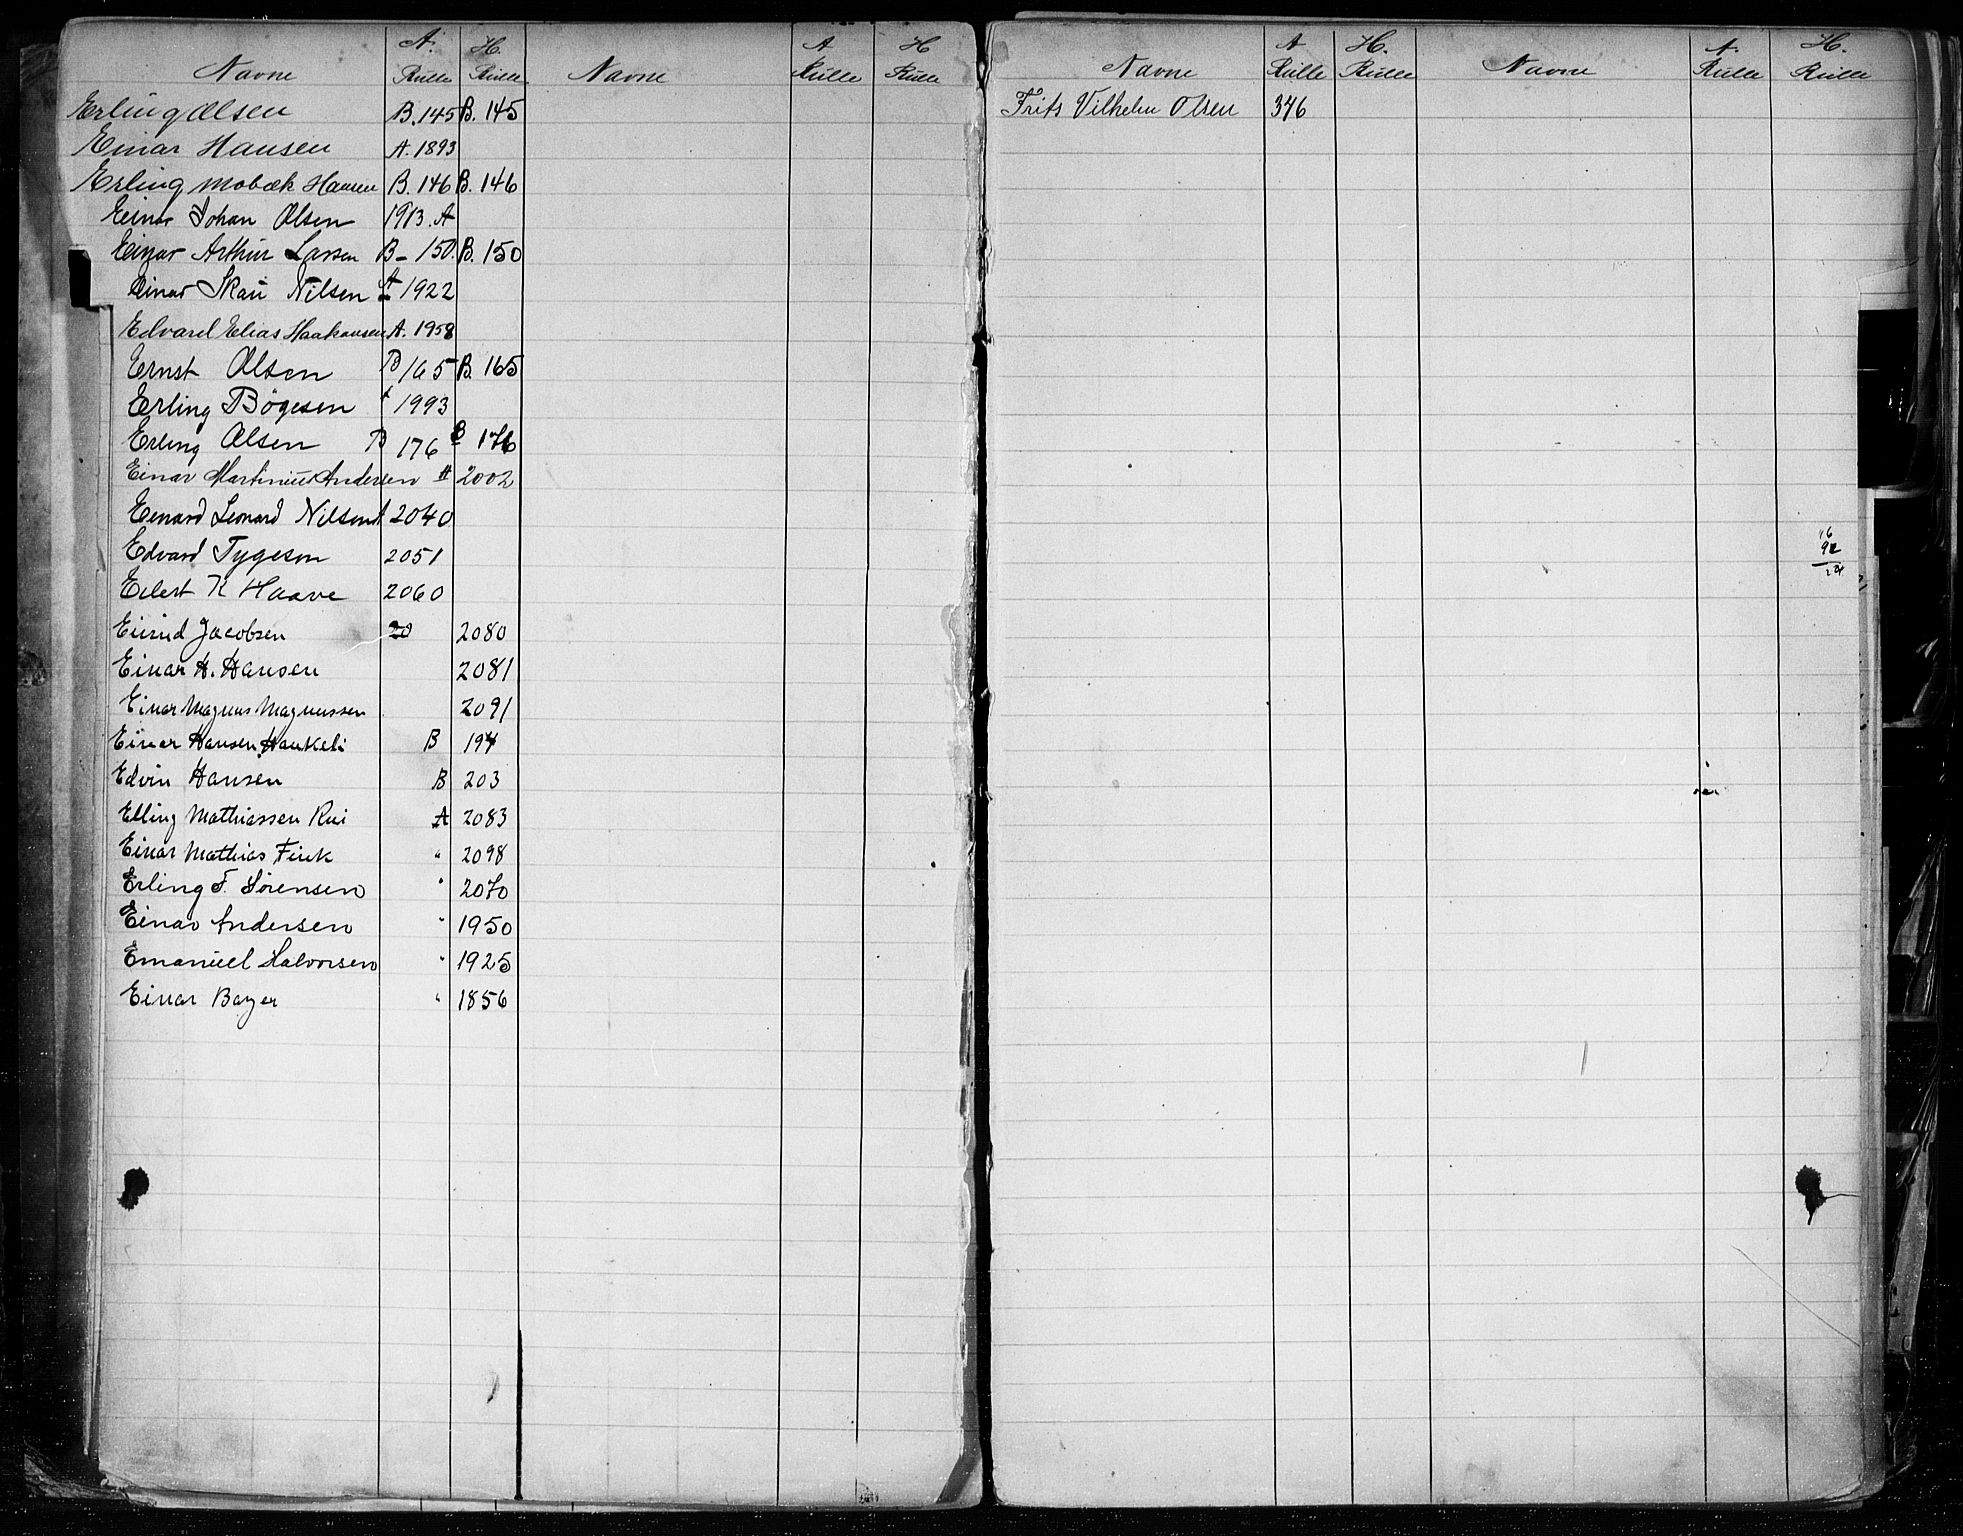 Navne A. Rulle H. Rulle Navne A Rulle H Rulle
Erling Olsen B. 145 B. 145
Einar Hansen A. 1893
Erling Mobæk Hansen B. 146 B. 146
Einar Johan Olsen 1913. A
Einar Arthur Larsen B - 150. B. 150
Einar Skau Nilsen A 1922
Edvard Elias Haakansen A. 1958
Ernst Olsen B 165 B. 165
Erling Bøgesen 1993
Erling Olsen B 176 B 176
Einar Martinius Andersen A 2002
Leonard Nilsen A 2040
Edvard Tygeson 2051
Eilert K Haave 2060
Eivind Jacobsen 20 2080
Einar H. Hansen 2081
Einar Magnus Magnussen 2091
Einar Hansen Haukeli B 194
Edvin Hansen B 203
Elling Mathiassen Rui A 2083
Einar Mathias Fink " 2098
Erling F. Sørensen " 2070
Einar Andersen " 1950
Emanuel Halvorsen " 1925
Einar Bayer " 1856
Navne A Rulle H. Rulle Navne A. Rulle H. Rulle
Frits Vilhelm Olsen 346